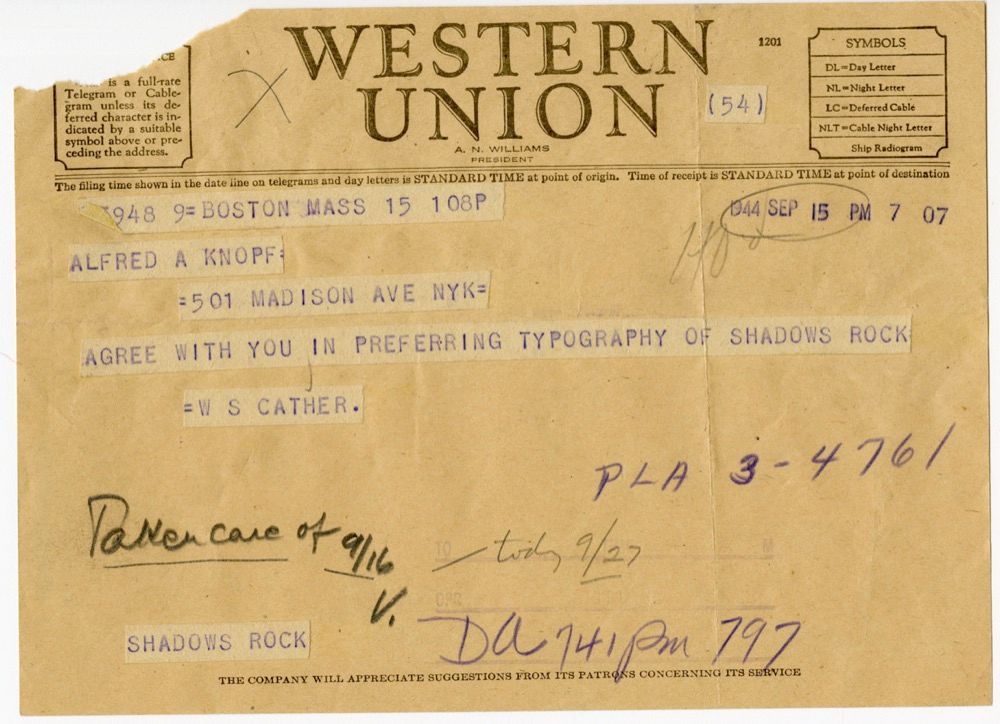 CE
is a full-rate
Telegram or Cable-
gram unless its de-
ferred character is in-
dicated by a suitable
symbol above or pre-
ceding the address.
WESTERN
UNION
A. N. WILLIAMS
PRESIDENT
1201
(54)
SYMBOLS
DL=Day Letter
NL=Night Letter
LC=Deferred Cable
NLT=Cable Night Letter
Ship Radiogram
The filing time shown in the date line on telegrams and day letters is STANDARD TIME at point of origin. Time of receipt is STANDARD TIME at point of destination
948 9=BOSTON MASS 15 108P
1944 SEP 15 PM 7 07
ALFRED A KNOPF=
=501 MADISON AVE NYK=
AGREE WITH YOU IN PREFERRING TYPOGRAPHY OF SHADOWS ROCK
=W S CATHER.
PLA 3-4761
Taken care of 9/16
V.
TO M
today 9/27
OPR
SHADOWS ROCK
DA 741pm 797
THE COMPANY WILL APPRECIATE SUGGESTIONS FROM ITS PATRONS CONCERNING ITS SERVICE